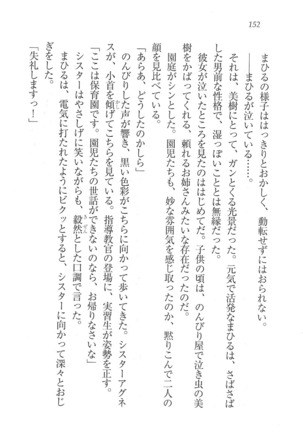 152
まひるの様子ははっきりとおかしく、動転せずにはおられない。
――まひるが泣いている……。
それは、美樹にとって、ガンとくる光景だった。元気で活発なまひるは、さばさば
した男前な性格で、湿っぽいこととは無縁だった。
彼女が泣いたところを見たのははじめてだ。子供の頃は、のんびり屋で泣き虫の美
樹をかばってくれる、頼れるお姉さんみたいな存在だったのだ。
園庭がシンとした。園児たちも、妙な雰囲気を感じ取ったのか、黙りこんで二人の
顔を見比べている。
「あらあ、どうしたのかしら」
のんびりした声が響き、黒い色彩がこちらに向かって歩いてきた。シスターアグネ
スが、小首を傾げてこちらを見ている。指導教官の登場に、実習生が姿勢を正す。
「ここは保育園です。園児たちの世話ができないのなら、お帰りなさいな」
シスターはやさしげに笑いながらも、毅然とした口調で言った。
まひるは、電気に打たれたようにビクッとすると、シスターに向かって深々とおじ
ぎをした。
「失礼しますっ！」